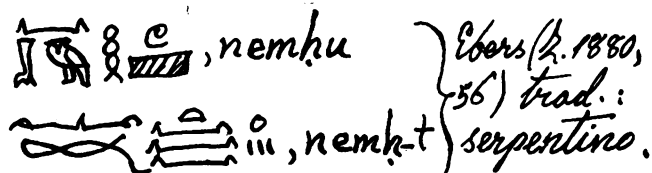 , nemḥu
, nemḥ-t
Ebers (Z. 1880,
56) trad. :
serpentino.